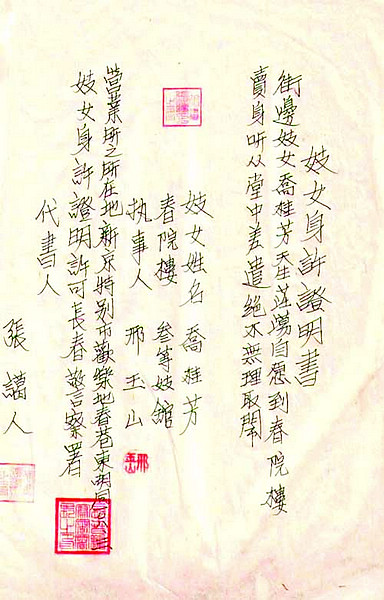 妓女身許證明書
街邊妓女喬桂芳天生淫蕩自愿到春院樓
賣身听从堂中差遣絕不無理取鬧
妓女姓名 喬桂芳
春院樓 叁等妓館
执事人 邢玉山
營業所之所在地新京特别市歡樂地春巷東明
妓女身許證明許可長春警察署
代書人 張謹人